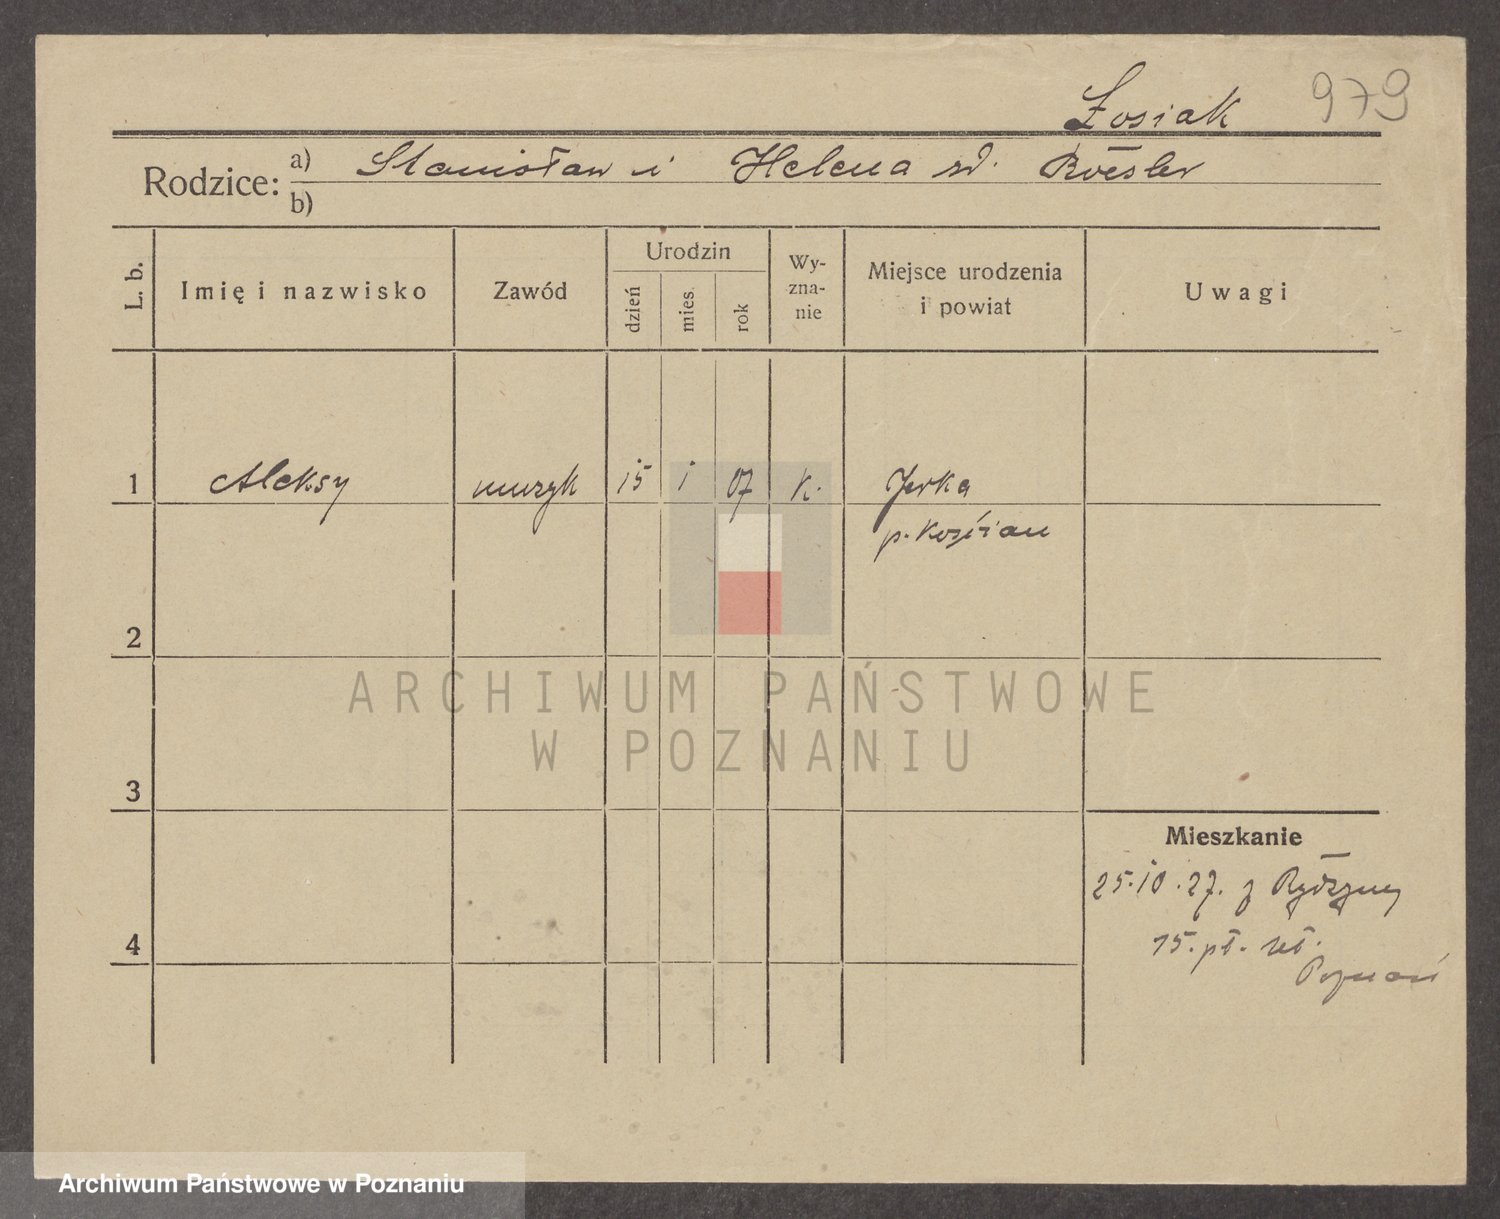 Łosiak 979
Rodzice: a) Stanisław i Helena zd. Roesler
b)
L. b. Imię i nazwisko Zawód Urodzin dzień mies. rok Wy-zna-nie Miejsce urodzenia i powiat Uwagi
1 Aleksy muzyk 15 1 07 k. Jerka
p. Kościan
2
ARCHIWUM PAŃSTWOWE
W POZNANIU
3
Mieszkanie
25.10.27. z Rydzyny
15. pł. uł.
Poznań
4
Archiwum Państwowe w Poznaniu